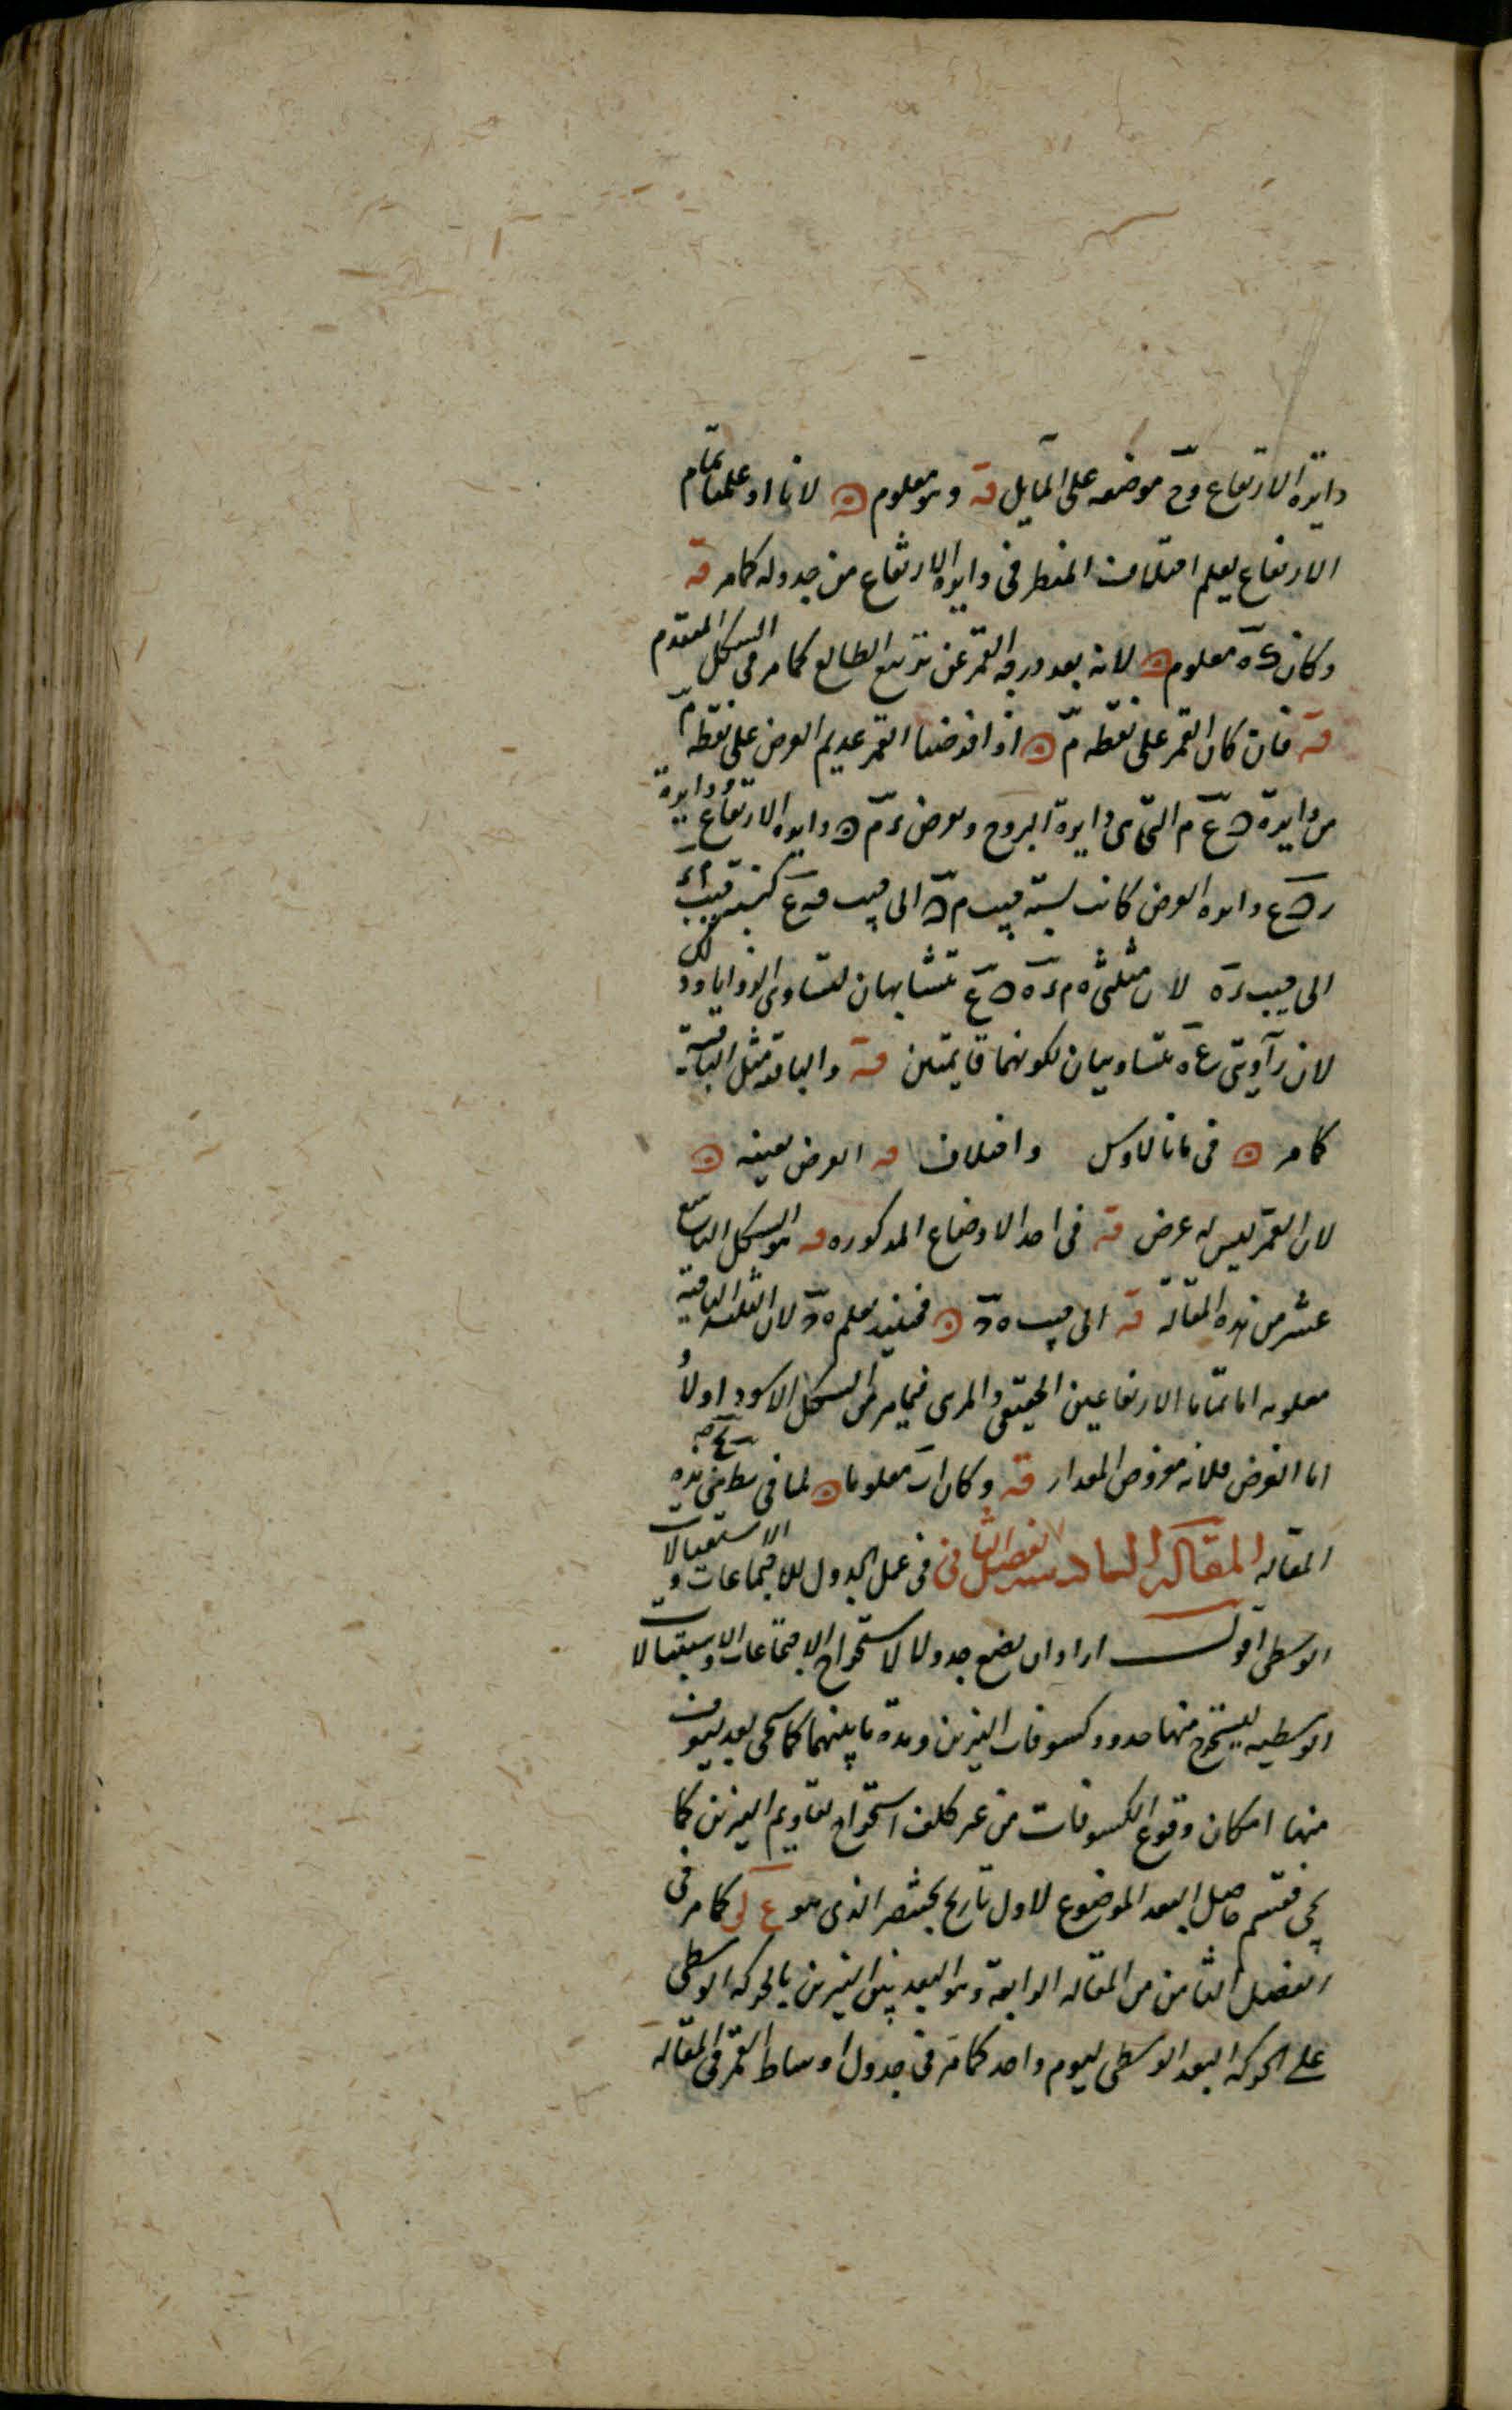 دايرة الارتفاع وح موضعه على المايل قه وهو معلوم ۞ لانا اذا علمنا تمام
الارتفاع يعلم اختلاف المنظر فى دايرة الارتفاع من جدوله كما مر قه
وكان ءه معلوم ۞ لانه بعد درجه القمر عن تربيع الطالع كما مر فى الشكل المتقدم
قه فان كان القمر على نقطه م ۞ اذا فرضنا القمر عديم العرض على نقطه م
من دايرة ه ع م التى هى دايرة البروج وبعرض ء م ه دايره الارتفاع ودايرة
ر ه ع دايره العرض كانت نسبة جيب م ه الى جيب ه ع كنسبة جيب م ء
الى جيب ء ه لان مثلثى ه م ء ه ه ع متشابهان لتساوى الزوايا
لان زاويتى ع ء متساويتان لكونهما قايمتين قه والباقية مثل الباقية
كما مر ۞ فى مانالاوس واختلاف قه العرض بعينه ۞
لان القمر ليس له عرض قه فى احد الاوضاع المذكوره قه هو الشكل التاسع
عشر من هذه المقالة قه الى جيب ه ح ۞ فحينئذ يعلم ه ح لان الثلثه الباقية
معلومه اما تماما الارتفاعين الحقيقى والمرى فيما مر من الشكل الاسود اولا و
اما العرض فلانه مفروض المقدار قه وكان ار معلوما ۞ لما فى سطحى هذه
المقاله المقالة السادسه الفصل الثانى فى عمل الجدول للاجتماعات و الاستقبالات
الوسطى اقول اراد ان يضع جدولا لاستخراج الاجتماعات والاستقبالات
الوسطيه ليستخرج منها حدود كسوفات النيرين ومدة ما بينهما كما سيجى بعد ليعرف
منها امكان وقوع الكسوفات من غير كلف استخراج تقاويم النيرين كما
يجى فقسم حاصل البعد الموضوع لاول تاريخ بختنصر الذى هو ع لى كما مر فى
الفصل الثامن من المقاله الرابعة وهو البعد بين النيرين بالحركه الوسطى
على الحركة البعد الوسطى ليوم واحد كما مر فى جدول اوساط القمر فى المقاله